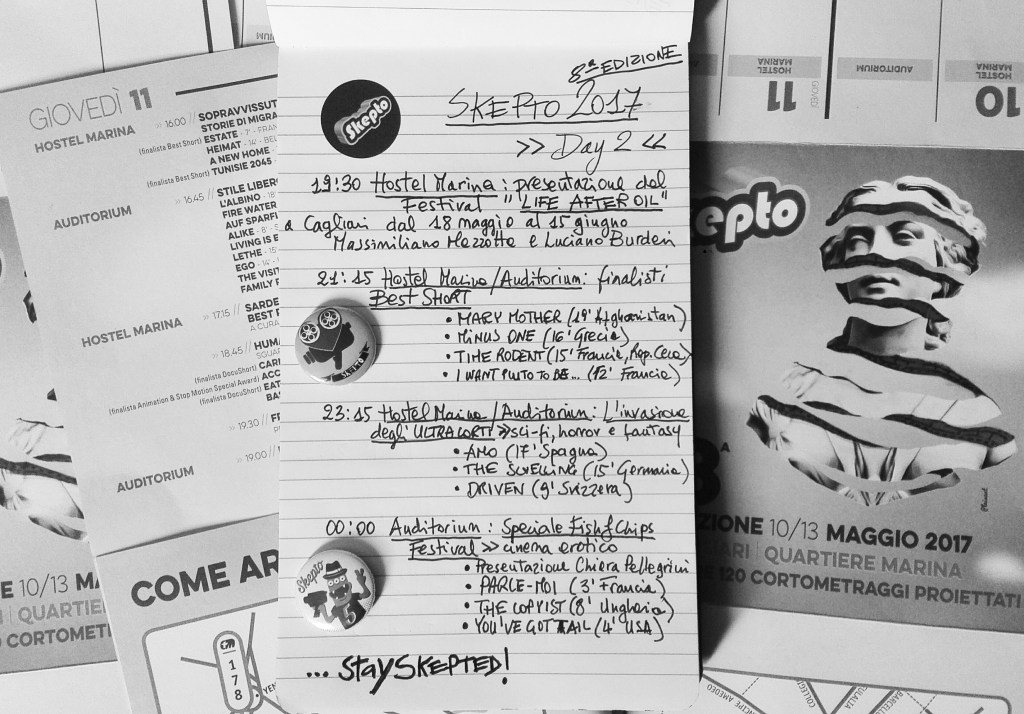 8ª EDIZIONE
SKEPTO 2017
>> Day 2 <<
19:30 Hostel Marina: presentazione del
Festival "LIFE AFTER OIL"
a Cagliari dal 18 maggio al 15 giugno
Massimiliano Mazzotta e Luciano Burderi
21:15 Hostel Marina/Auditorium: finalisti
BEST SHORT
• MARY MOTHER (19' Afghanistan)
• MINUS ONE (16' Grecia)
• TIME RODENT (15' Francia, Rep. Ceca)
• I WANT PLUTO TO BE... (12' Francia)
23:15 Hostel Marina/Auditorium: L'invasione
degli ULTRACORTI >> sci-fi, horror e fantasy
• AMO (17' Spagna)
• THE SWELLING (15' Germania)
• DRIVEN (9' Svizzera)
00:00 Auditorium: Speciale Fish&Chips
Festival >> cinema erotico
• Presentazione Chiara Pellegrini
• PARLE-MOI (3' Francia)
• THE COPYIST (8' Ungheria)
• YOU'VE GOT TAIL (4' USA)
... StaySKEPTED!
skepto
SKEPTO
Skepto
GIOVEDÌ 11
HOSTEL MARINA
>> 16.00 // SOPRAVVISSUT
STORIE DI MIGRA
(finalista Best Short) ESTATE - 7' - FRAN
HEIMAT - 14' - BEL
A NEW HOME -
(finalista Best Short) TUNISIE 2045 -
AUDITORIUM
>> 16.45 // STILE LIBER
L'ALBINO - 18'
FIRE WATER
AUF SPARFL
ALIKE - 8' - S
LIVING IS E
LETHE - 15'
EGO - 14' -
THE VISIT
FAMILY F
HOSTEL MARINA
>> 17.15 // SARDE
BEST F
A CURA
>> 18.45 // HUMA
SGUAR
(finalista DocuShort) CARI
(finalista Animation & Stop Motion Special Award) ACC
(finalista DocuShort) EAT
BA
>> 19.30 // FR
AUDITORIUM
>> 19.00 //
COME AR
178
10/13 MA
QUARTIERE
CORTOMETR
HOSTEL MARINA
GIOVEDÌ 11
AUDITORIUM
HOSTEL MARINA
10
epto
8ª
ZIONE 10/13 MAGGIO 2017
ARI | QUARTIERE MARINA
120 CORTOMETRAGGI PROIETTATI